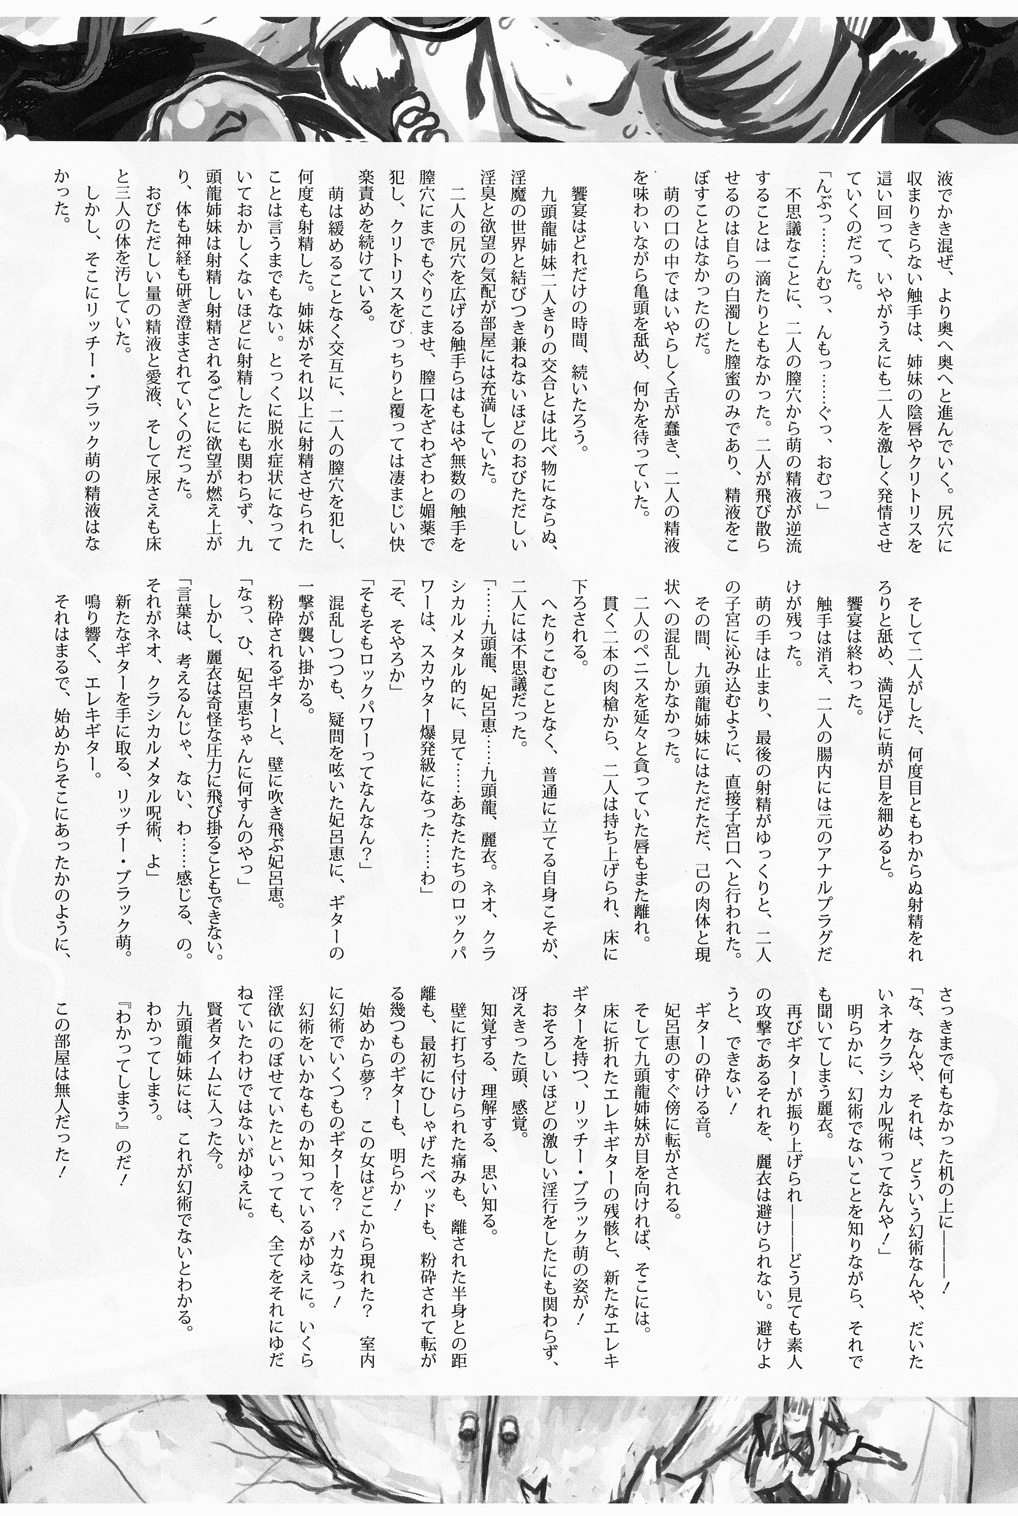 液でかき混ぜ、より奥へ奥へと進んでいく。尻穴に
収まりきらない触手は、姉妹の陰唇やクリトリスを
這い回って、いやがうえにも二人を激しく発情させ
ていくのだった。
「んぶっ……んむっ、んもっ……ぐっ、おむっ」
不思議なことに、二人の膣穴から萌の精液が逆流
することは一滴たりともなかった。二人が飛び散ら
せるのは自らの白濁した膣蜜のみであり、精液をこ
ぼすことはなかったのだ。
萌の口の中ではいやらしく舌が蠢き、二人の精液
を味わいながら亀頭を舐め、何かを待っていた。
饗宴はどれだけの時間、続いたろう。
九頭龍姉妹二人きりの交合とは比べ物にならぬ、
淫魔の世界と結びつき兼ねないほどのおびただしい
淫臭と欲望の気配が部屋には充満していた。
二人の尻穴を広げる触手らはもはや無数の触手を
膣穴にまでもぐりこませ、膣口をざわざわと媚薬で
犯し、クリトリスをびっちりと覆っては凄まじい快
楽責めを続けている。
萌は緩めることなく交互に、二人の膣穴を犯し、
何度も射精した。姉妹がそれ以上に射精させられた
ことは言うまでもない。とっくに脱水症状になって
いておかしくないほどに射精したにも関わらず、九
頭龍姉妹は射精し射精されるごとに欲望が燃え上が
り、体も神経も研ぎ澄まされていくのだった。
おびただしい量の精液と愛液、そして尿さえも床
と三人の体を汚していた。
しかし、そこにリッチー・ブラック萌の精液はな
かった。
そして二人がした、何度目ともわからぬ射精をれ
ろりと舐め、満足げに萌が目を細めると。
饗宴は終わった。
触手は消え、二人の腸内には元のアナルプラグだ
けが残った。
萌の手は止まり、最後の射精がゆっくりと、二人
の子宮に沁み込むように、直接子宮口へと行われた。
その間、九頭龍姉妹にはただただ、己の肉体と現
状への混乱しかなかった。
二人のペニスを延々と貪っていた唇もまた離れ。
貫く二本の肉槍から、二人は持ち上げられ、床に
下ろされる。
へたりこむことなく、普通に立てる自身こそが、
二人には不思議だった。
「……九頭龍、妃呂恵……九頭龍、麗衣。ネオ、クラ
シカルメタル的に、見て……あなたたちのロックパ
ワーは、スカウター爆発級になった……わ」
「そ、そやろか」
「そもそもロックパワーってなんなん？」
混乱しつつも、疑問を呟いた妃呂恵に、ギターの
一撃が襲い掛かる。
粉砕されるギターと、壁に吹き飛ぶ妃呂恵。
「なっ、ひ、妃呂恵ちゃんに何すんのやっ」
しかし、麗衣は奇怪な圧力に飛び掛ることもできない。
「言葉は、考えるんじゃ、ない、わ……感じる、の。
それがネオ、クラシカルメタル呪術、よ」
新たなギターを手に取る、リッチー・ブラック萌。
鳴り響く、エレキギター。
それはまるで、始めからそこにあったかのように、
さっきまで何もなかった机の上に―――！
「な、なんや、それは、どういう幻術なんや、だいた
いネオクラシカル呪術ってなんや！」
明らかに、幻術でないことを知りながら、それで
も聞いてしまう麗衣。
再びギターが振り上げられ―――どう見ても素人
の攻撃であるそれを、麗衣は避けられない。避けよ
うと、できない！
ギターの砕ける音。
妃呂恵のすぐ傍に転がされる。
そして九頭龍姉妹が目を向ければ、そこには。
床に折れたエレキギターの残骸と、新たなエレキ
ギターを持つ、リッチー・ブラック萌の姿が！
おそろしいほどの激しい淫行をしたにも関わらず、
冴えきった頭、感覚。
知覚する、理解する、思い知る。
壁に打ち付けられた痛みも、離された半身との距
離も、最初にひしゃげたベッドも、粉砕されて転が
る幾つものギターも、明らか！
始めから夢？　この女はどこから現れた？　室内
に幻術でいくつものギターを？　バカなっ！
幻術をいかなものか知っているがゆえに。いくら
淫欲にのぼせていたといっても、全てをそれにゆだ
ねていたわけではないがゆえに。
賢者タイムに入った今。
九頭龍姉妹には、これが幻術でないとわかる。
わかってしまう。
『わかってしまう』のだ！
この部屋は無人だった！